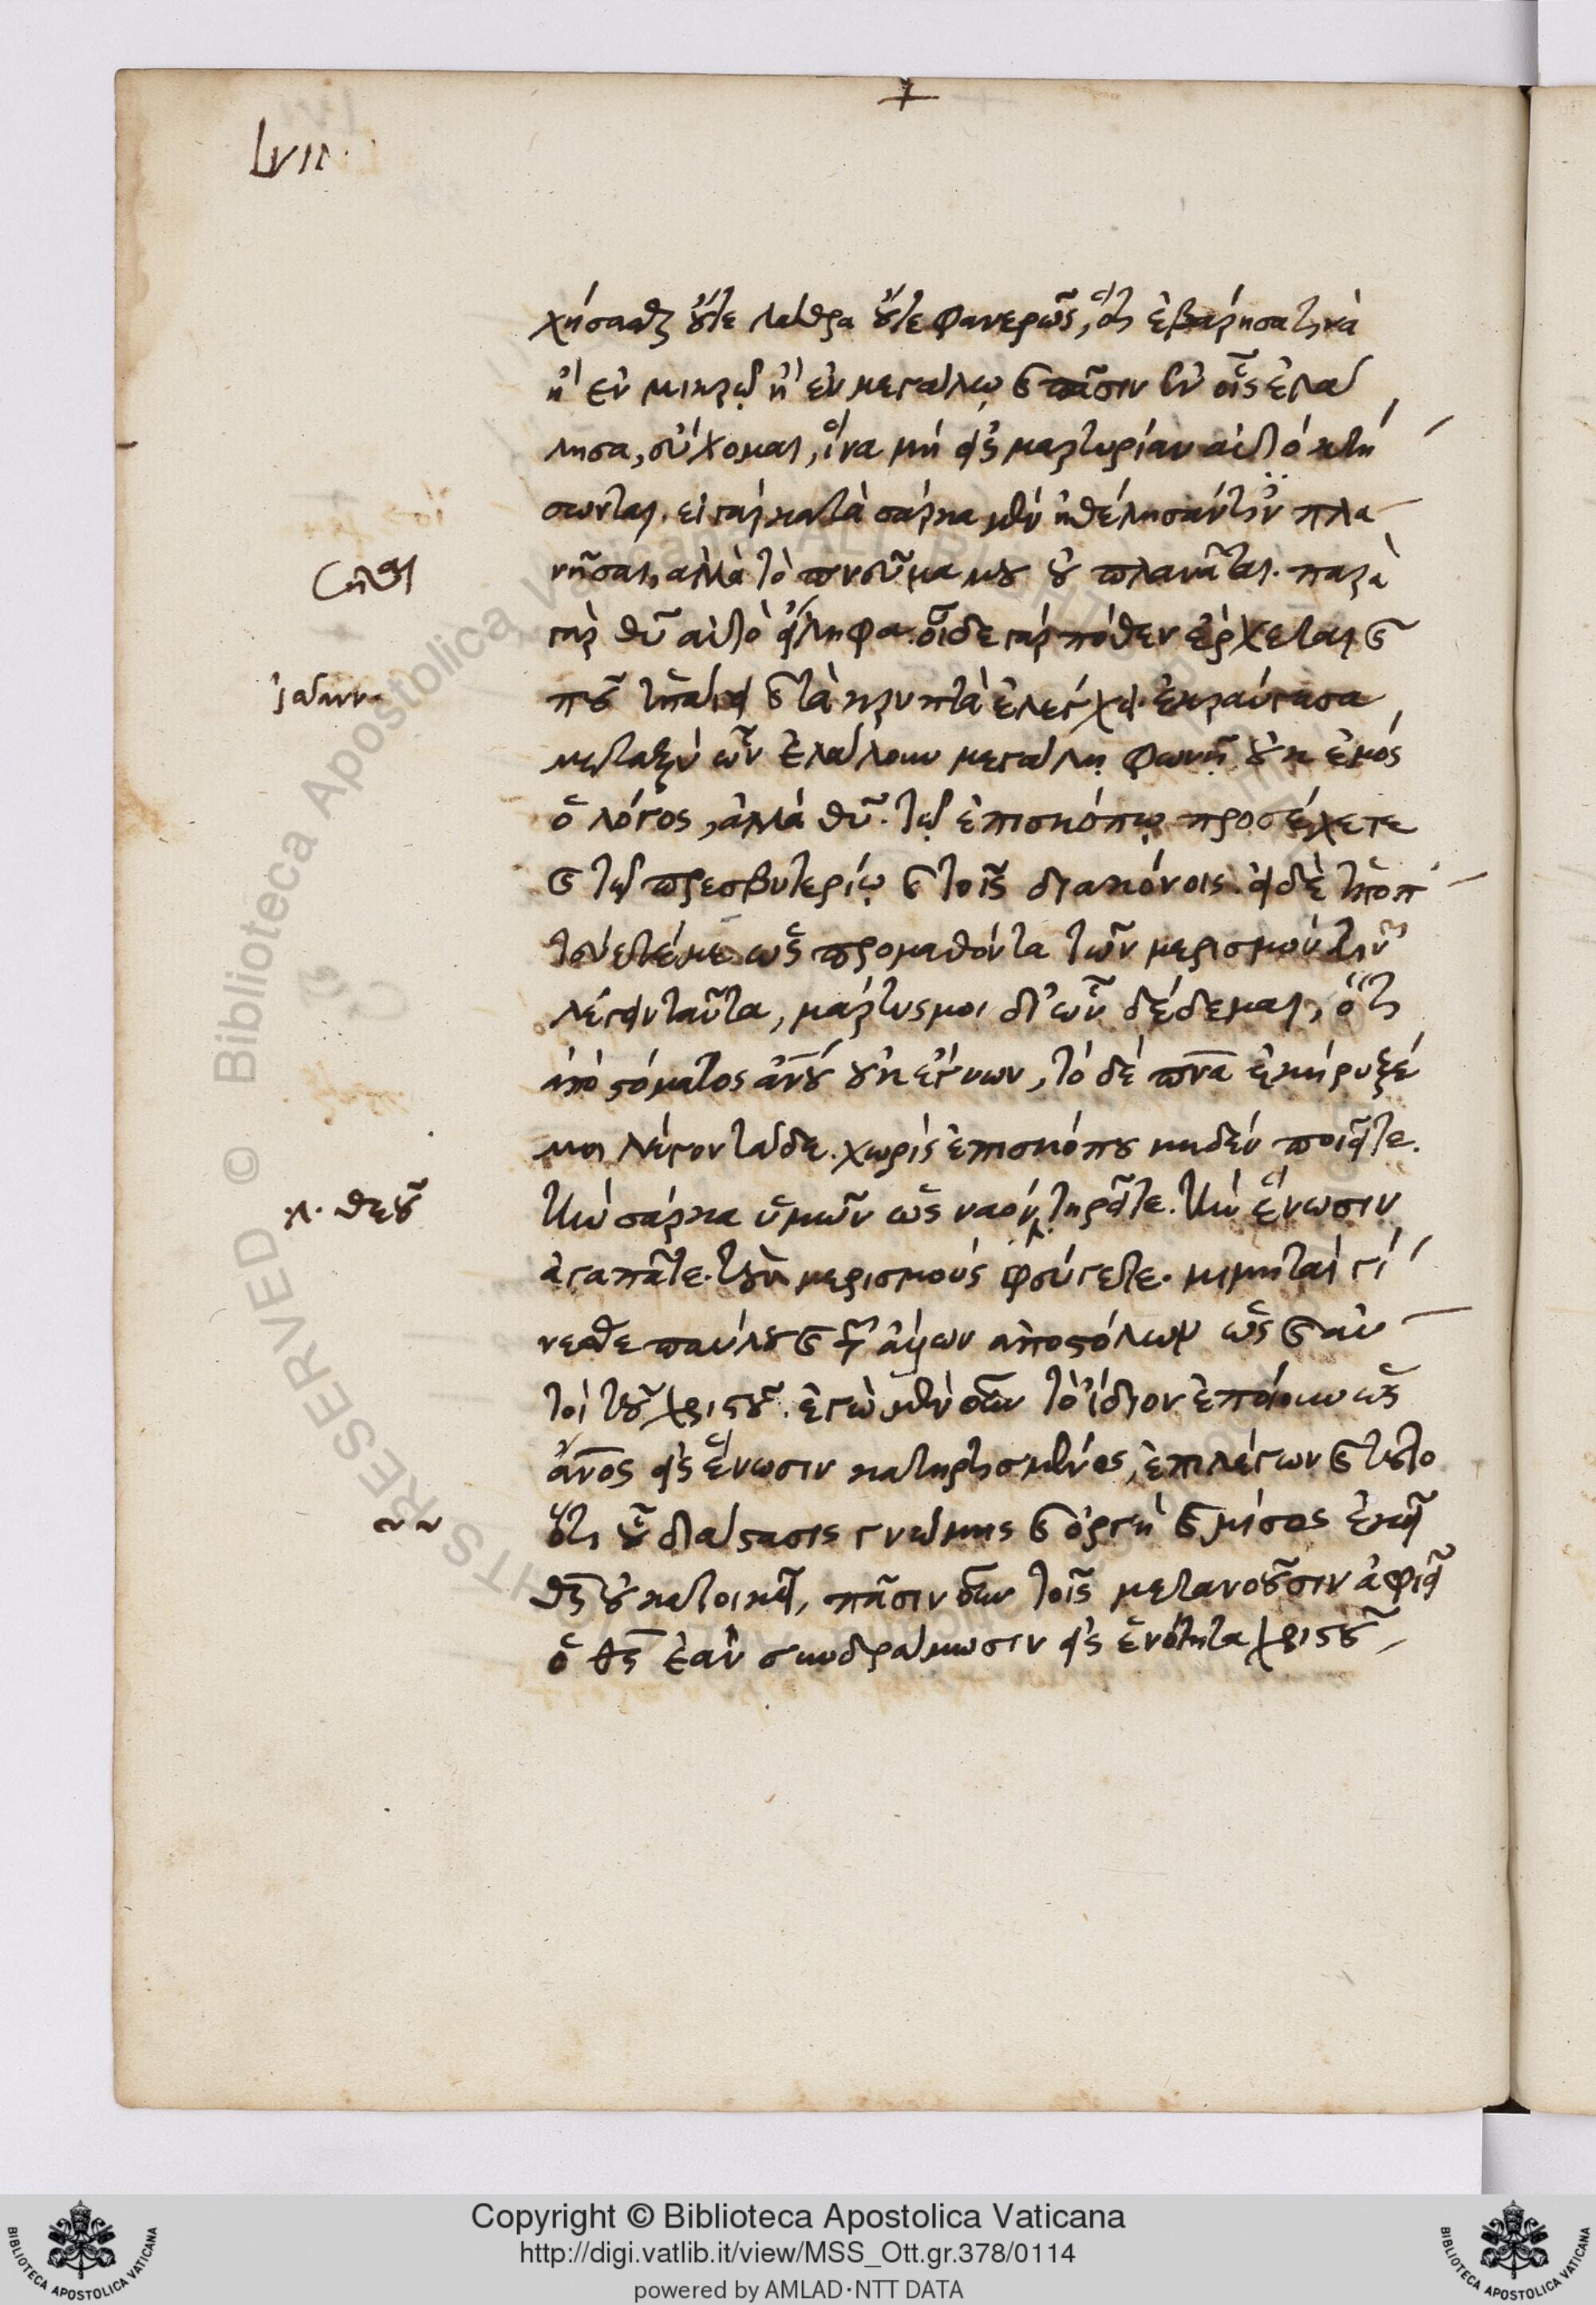 LVII
χήσασθαι οὔτε λάθρα οὔτε φανερῶς, ὅτι ἐβάρησα τινὰ
ἢ ἐν μικρῷ ἢ ἐν μεγάλῳ καὶ πᾶσιν ἐν οἷς ἐλά
λησα, εὔχομαι, ἵνα μή εἰς μαρτυρίαν αὐτὸ κτή
σωνται. εἰ γὰρ κατὰ σάρκα μέν ἠθέλησάν τινες πλα
νῆσαι, ἀλλὰ τὸ πνεῦμα μου οὐ πλανᾶται. παρὰ
γὰρ θεοῦ αὐτὸ εἴληφα. οἶδε γὰρ πόθεν ἔρχεται καὶ
ἰωάνν
ποῦ ὑπάγει καὶ τὰ κρυπτὰ ἐλέγχει. ἐκραύγασα
μεταξὺ ὧν ἐλάλουν μεγάλη φωνῇ οὐκ ἐμός
ὁ λόγος, ἀλλά θεοῦ. τῷ ἐπισκόπῳ προσέχετε
καὶ τῷ πρεσβυτερίῳ καὶ τοῖς διακόνοις. εἰ δὲ ὑποπ
τεύετέ με ὡς προμαθόντα τῶν μερισμόν τινων
λέγειν ταῦτα, μάρτυς μοι δι' ὧν δέδεμαι, ὅτι
ἀπὸ στόματος ἀνου οὐκ ἔγνων, τὸ δέ πνα ἐκήρυξέ
μοι λέγον τάδε. χωρίς ἐπισκόπου μηδέν ποιεῖτε.
λ. θεοῦ
τὴν σάρκα ὑμῶν ὡς ναόν τηρεῖτε. τὴν ἕνωσιν
ἀγαπᾶτε. τοὺς μερισμοὺς φεύγετε. μιμηταὶ γί
νεσθε παύλου καὶ τῶν ἄλλων ἀποστόλων ὡς καὶ αὐ
τοὶ τοῦ χριστοῦ. ἐγὼ μὲν οὖν τὸ ἴδιον ἐποίουν ὡς
ἄνος εἰς ἕνωσιν κατηρτισμένος, ἐπιλέγων καὶ τοῦτο
ὅτι οὗ διάστασις γνώμης καὶ ὀργὴ καὶ μίσος ἐκεῖ
θς οὐ κατοικεῖ, πᾶσιν οὖν τοῖς μετανοοῦσιν ἀφιεῖ
ὁ θς ἐὰν συνδράμωσιν εἰς ἑνότητα χριστοῦ
Copyright © Biblioteca Apostolica Vaticana
http://digi.vatlib.it/view/MSS_Ott.gr.378/0114
powered by AMLAD·NTT DATA